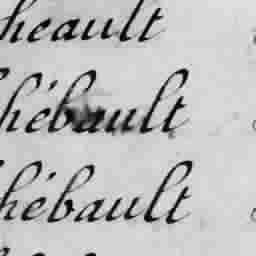 heault
hébault
hébault